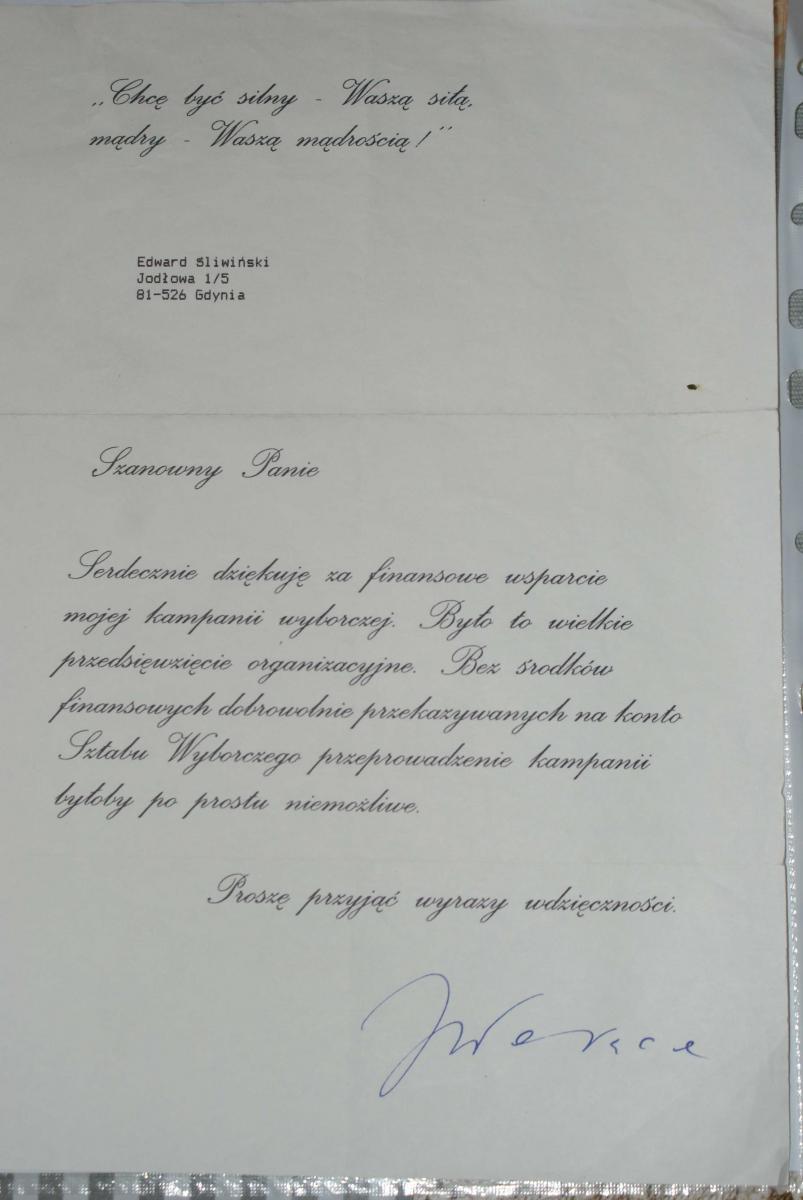 „Chcę być silny - Waszą siłą,
mądry - Waszą mądrością!”
Edward Śliwiński
Jodłowa 1/5
81-526 Gdynia
Szanowny Panie
Serdecznie dziękuję za finansowe wsparcie
mojej kampanii wyborczej. Było to wielkie
przedsięwzięcie organizacyjne. Bez środków
finansowych dobrowolnie przekazywanych na konto
Sztabu Wyborczego przeprowadzenie kampanii
byłoby po prostu niemożliwe.
Proszę przyjąć wyrazy wdzięczności.